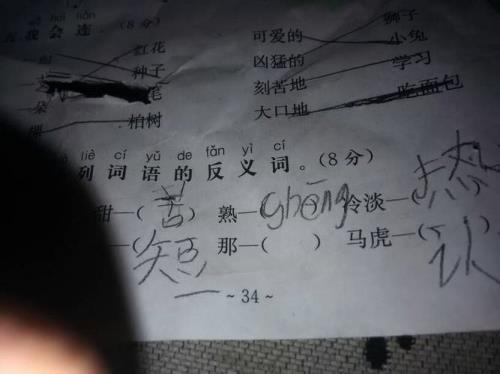 huì lián
我会连。(8分)
红花 可爱的 狮子
种子 凶猛的 小兔
朵 毛 刻苦地 学习
棵 柏树 大口地 吃面包
liè cí yǔ de fǎn yì cí
列词语的反义词。(8分)
甜—(苦) 熟—(shēng 冷淡—(热
—(短) 那—( ) 马虎—(认
~34~